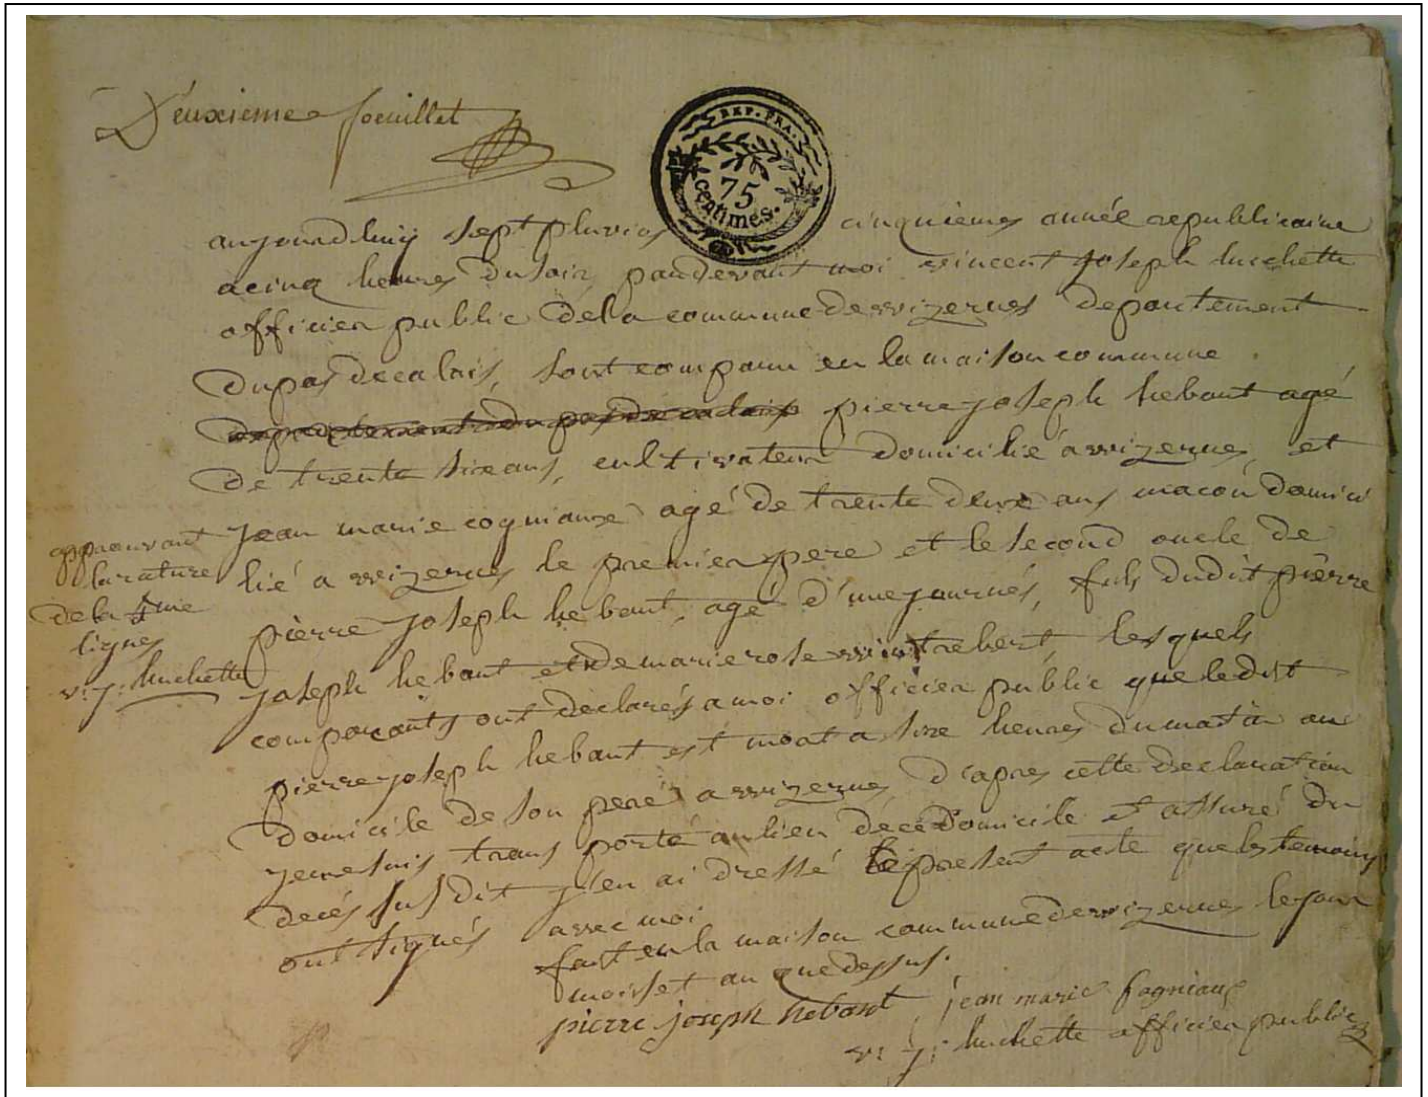 Deuxieme foeuillet
REP. FRA.
75
centimes.
aujourdhuij sept pluvios cinquiemes année republicaine
acinq heures du soir, pardevant moi vincent joseph huchette
officier public dela commune dewizernes departement
dupas decalais, sont comparu en la maison commune
departement du pas de calais pierre joseph hebant agé
de trente six ans, cultivateur domicilié a wizernes, et
jean marie cogniaux agé de trente deux ans macon domici
lié a wizernes le premier pere et le second oncle de
pierre joseph hebant, agé d'une journés, fils dudit pierre
joseph hebant et de marie rose wintrebert, lesquels
comparants ont declarés a moi officier public que ledit
pierre joseph hebant est mort a sixe heures du matin au
domicile de son pere a wizernes d'apres cette declaration
jemesuis trans porté aulieu dece domicile et assuré du
decés susdit j'en ai dressé le present acte que les temoins
ont signés avec moi
fait en la maison commune dewizernes lejour
mois et an que dessus.
approuvant
larature
dela 5me
lignes
v: j: huchette
pierre joseph hebant, jean marie cogniaux
v: j: huchette officier public